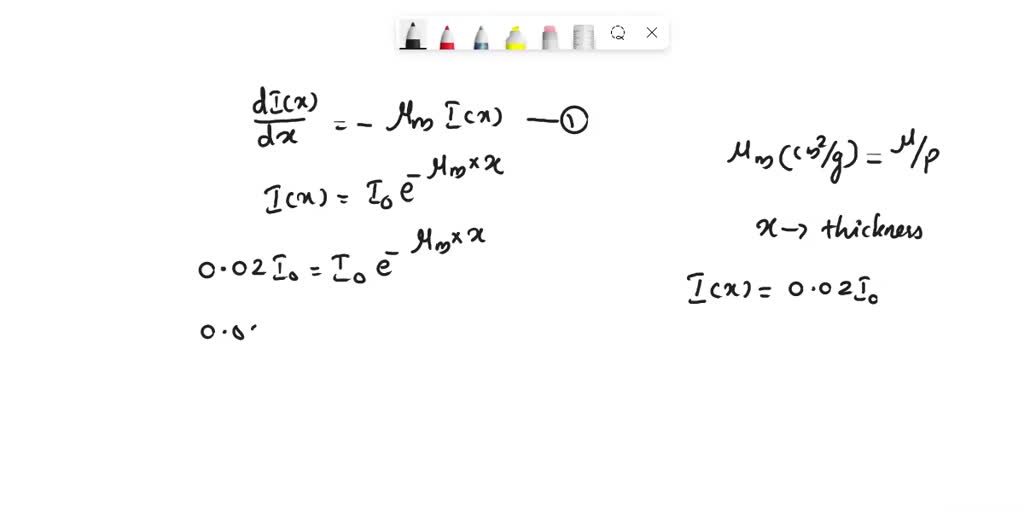 dI(x)/dx = - μm I(x) — ①
I(x) = I₀ e^(- μm × x)
0.02 I₀ = I₀ e^(- μm × x)
0.0
μm (cm²/g) = μ/ρ
x → thickness
I(x) = 0.02 I₀